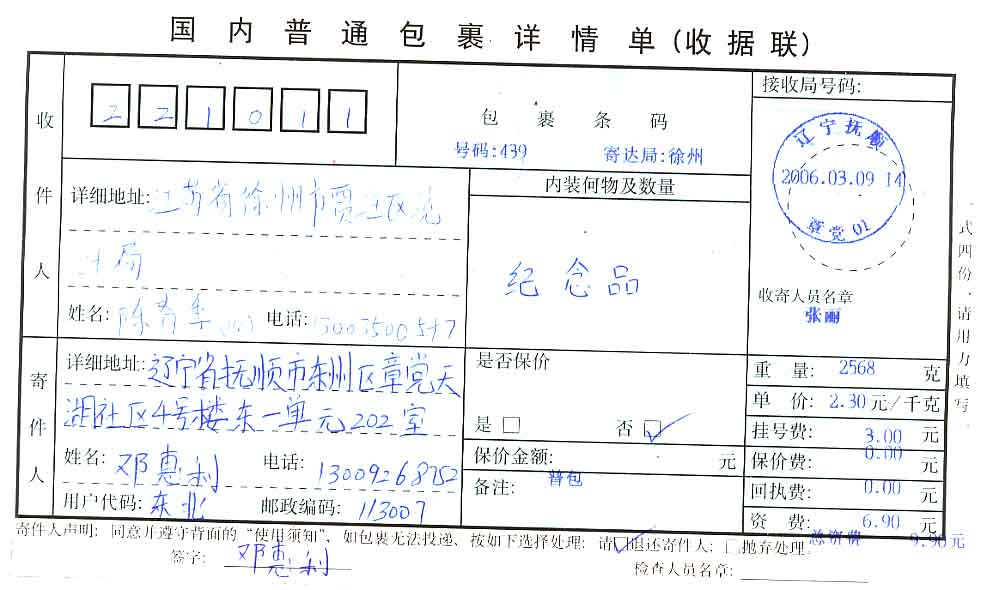 国内普通包裹详情单(收据联)
收件人
221011
包裹条码
号码:439 寄达局:徐州
接收局号码:
辽宁抚顺
2006.03.09 14
章党 01
详细地址:江苏省徐州市贾汪区
局
姓名:陈 电话:
内装何物及数量
纪念品
收寄人员名章
张丽
寄件人
详细地址:辽宁省抚顺市东州区章党天
湖社区4号楼东一单元202室
姓名:邓惠利 电话:13009268752
用户代码:东北 邮政编码:113007
是否保价
是 否 ✓
保价金额: 元
备注: 普包
重量: 2568 克
单价: 2.30 元/千克
挂号费: 3.00 元
保价费: 0.00 元
回执费: 0.00 元
资费: 6.90 元
总资费 9.90元
式四份,请用力填写
寄件人声明:同意并遵守背面的“使用须知”、如包裹无法投递、按如下选择处理:请☑退还寄件人;□抛弃处理
签字: 邓惠利
检查人员名章: